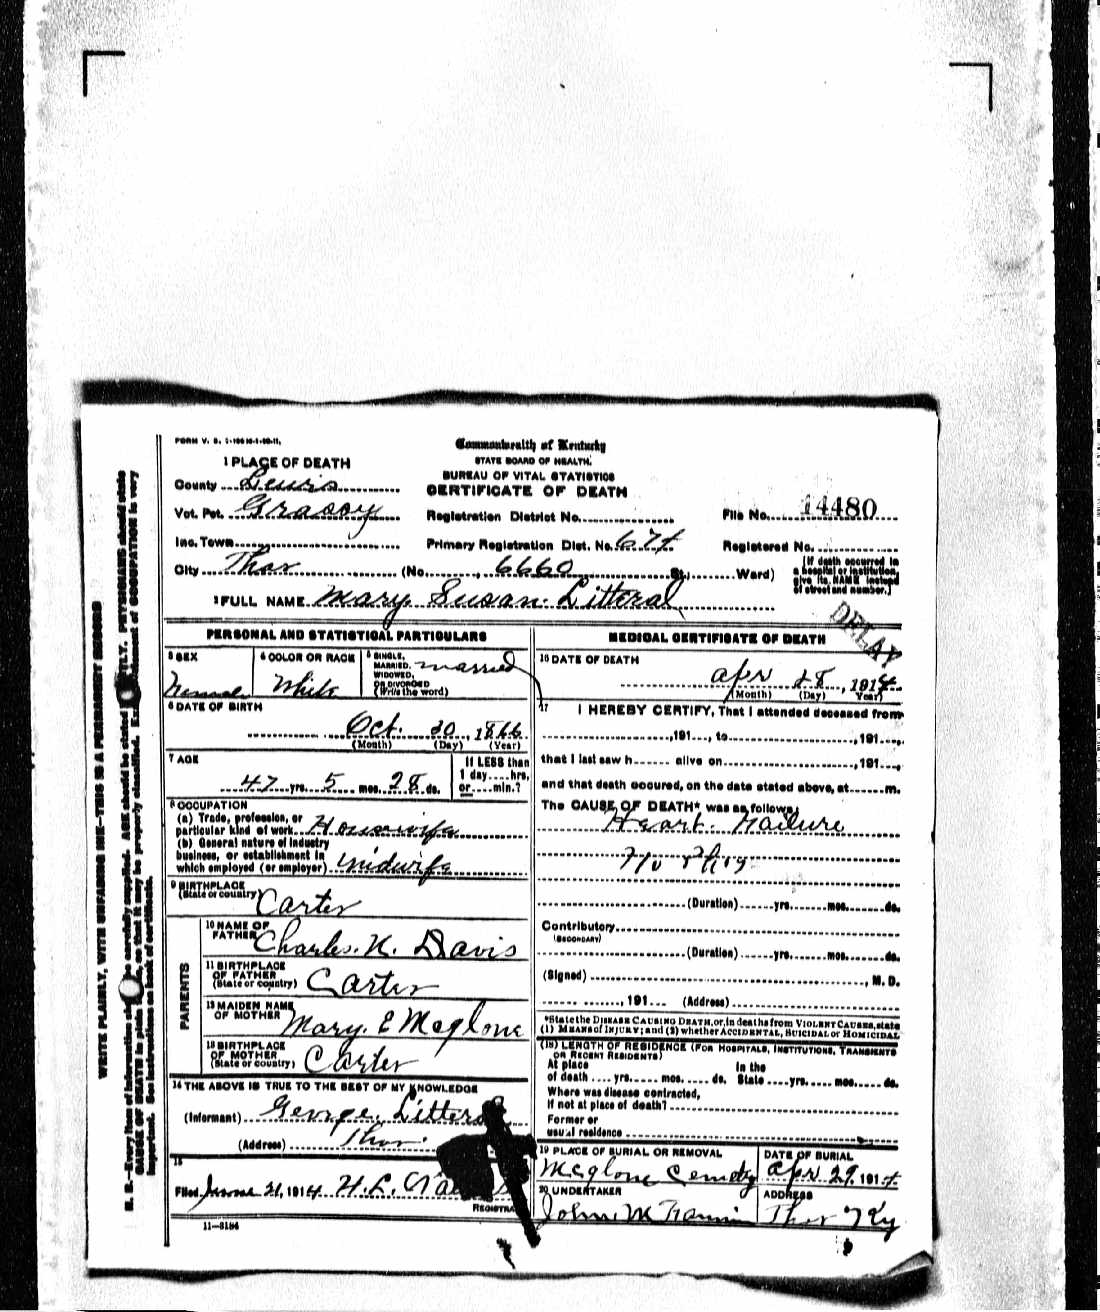 FORM V. S. 1-
Commonwealth of Kentucky
STATE BOARD OF HEALTH.
BUREAU OF VITAL STATISTICS
CERTIFICATE OF DEATH
1 PLACE OF DEATH
County Lewis
Vot. Pct. Grassy
Registration District No.
File No. 14480
Inc. Town
Primary Registration Dist. No. 674
Registered No.
City Thor (No. 6660 St.; Ward)
[If death occurred in a hospital or institution, give its NAME instead of street and number.]
2 FULL NAME Mary Susan Litteral
DELAY
PERSONAL AND STATISTICAL PARTICULARS
3 SEX Female
4 COLOR OR RACE White
5 SINGLE, MARRIED, WIDOWED, OR DIVORCED (Write the word) married
6 DATE OF BIRTH
Oct. 30, 1866
(Month) (Day) (Year)
7 AGE
47 yrs. 5 mos. 28 ds.
If LESS than 1 day....hrs, or....min.?
8 OCCUPATION
(a) Trade, profession, or
particular kind of work Housewife
(b) General nature of industry
business, or establishment in
which employed (or employer) midwife
9 BIRTHPLACE
(State or country) Carter
PARENTS
10 NAME OF
FATHER Charles. N. Davis
11 BIRTHPLACE
OF FATHER
(State or country) Carter
12 MAIDEN NAME
OF MOTHER Mary. E Mcglone
13 BIRTHPLACE
OF MOTHER
(State or country) Carter
14 THE ABOVE IS TRUE TO THE BEST OF MY KNOWLEDGE
(Informant) George. Litteral
(Address) Thor.
15
Filed June 21, 1914 H. L.
REGISTRAR
11—3184
MEDICAL CERTIFICATE OF DEATH
16 DATE OF DEATH
apr 28, 1914
(Month) (Day) Year)
17 I HEREBY CERTIFY, That I attended deceased from
, 191..., to , 191...,
that I last saw h alive on , 191...,
and that death occured, on the date stated above, at m.
The CAUSE OF DEATH* was as follows:
Heart. Failure
No Phy.
(Duration) yrs. mos. ds.
Contributory
(SECONDARY)
(Duration) yrs. mos. ds.
(Signed) , M. D.
, 191... (Address)
*State the DISEASE CAUSING DEATH, or, in deaths from VIOLENT CAUSES, state
(1) MEANS of INJURY; and (2) whether ACCIDENTAL, SUICIDAL or HOMICIDAL
(18) LENGTH OF RESIDENCE (FOR HOSPITALS, INSTITUTIONS, TRANSIENTS
OR RECENT RESIDENTS)
At place In the
of death yrs. mos. ds. State yrs. mos. ds.
Where was disease contracted,
if not at place of death?
Former or
usual residence
19 PLACE OF BURIAL OR REMOVAL
Mcglone Cemetry
DATE OF BURIAL
apr 29, 1914
20 UNDERTAKER
John. M
ADDRESS
Thor Ky
WRITE PLAINLY, WITH UNFADING INK—THIS IS A PERMANENT RECORD
N. B.—Every item of information should be carefully supplied. AGE should be stated EXACTLY. PHYSICIANS should state
CAUSE OF DEATH in plain terms, so that it may be properly classified. Exact statement of OCCUPATION is very
important. See instructions on back of certificate.